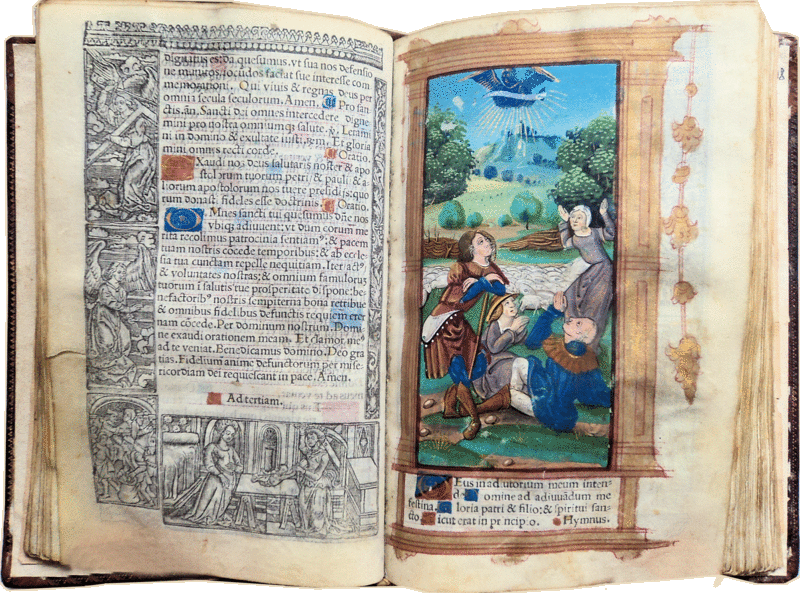 dignatus es: da quesumus. vt sua nos defensio
ne munitos, iocūdos faciat sue interesse com
memorationi. Qui viuis & regnas deus per
omnia secula seculorum. Amen. Pro san
ctis. añ. Sancti dei omnes intercedere digne
mini pro nostra omniumq; salute. Letami
ni in domino & exultate iusti. Et gloria
mini omnes recti corde. Oratio.
Xaudi nos deus salutaris noster & apo
stolorum tuorum petri & pauli & a
liorum apostolorum nos tuere presidiis: quo
rum donasti fideles esse doctrinis. Oratio.
Mnes sancti tui quesumus dñe nos
vbiq; adiuuent: vt dum eorum me
rita recolimus patrocinia sentiam⁹: & pacem
tuam nostris cōcede temporibus: & ab eccle
sia tua cunctam repelle nequitiam. Iter: act⁹
& voluntates nostras: & omnium famulorū
tuorum ī salutis tue prosperitate dispone: be
nefactorib⁹ nostris sempiterna bona retribue
& omnibus fidelibus defunctis requiem eter
nam cōcede. Per dominum nostrum. Domi
ne exaudi orationem meam. Et clamor me⁹
ad te veniat. Benedicamus domino. Deo gra
tias. Fidelium anime defunctorum per mise
ricordiam dei requiescant in pace. Amen.
Ad tertiam.
Eus in adiutorium meum inten
de. omine ad adiuuādum me
festina. loria patri & filio: & spiritui san
cto. icut erat in principio. Hymnus.